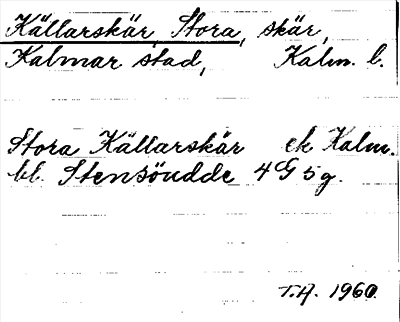 Källarskär, Stora, skär,
Kalmar stad, Kalm. l.
Stora Källarskär ek Kalm.
bl. Stensöudde 4G5g.
T.H. 1960.